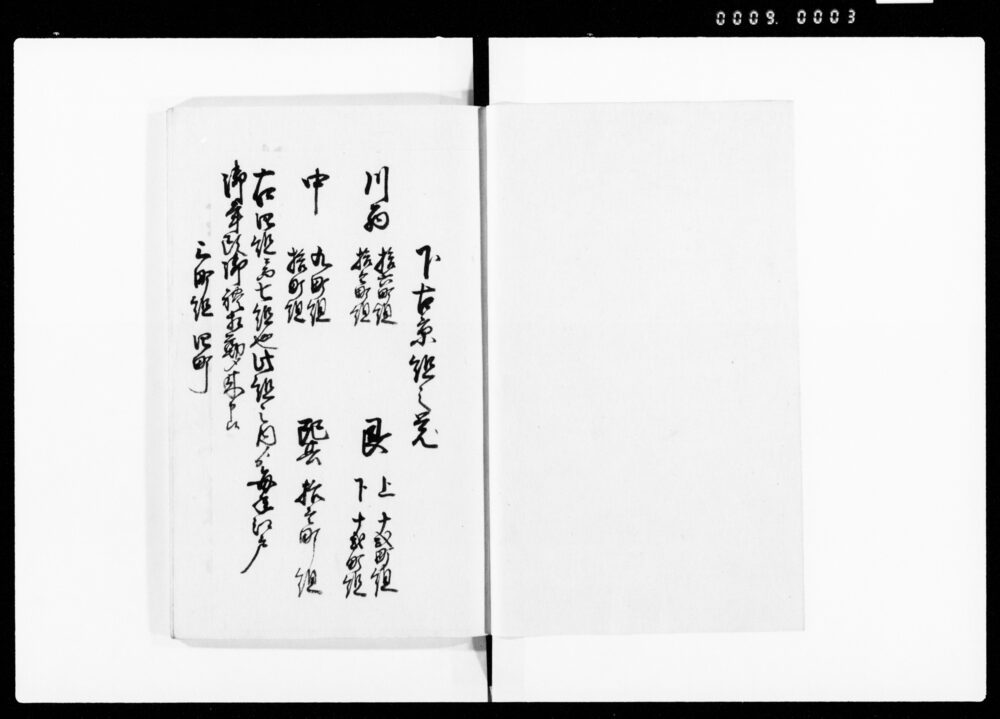 0009. 0003
下古京組之覚
川西
拾六町組
拾壱町組
艮
上 十弐町組
下 十弐町組
中
九町組
拾町組
巽 拾壱町組
右四組為七組也此組之内ゟ毎年江戸
御年頭御禮相勤来申候
三町組 四町